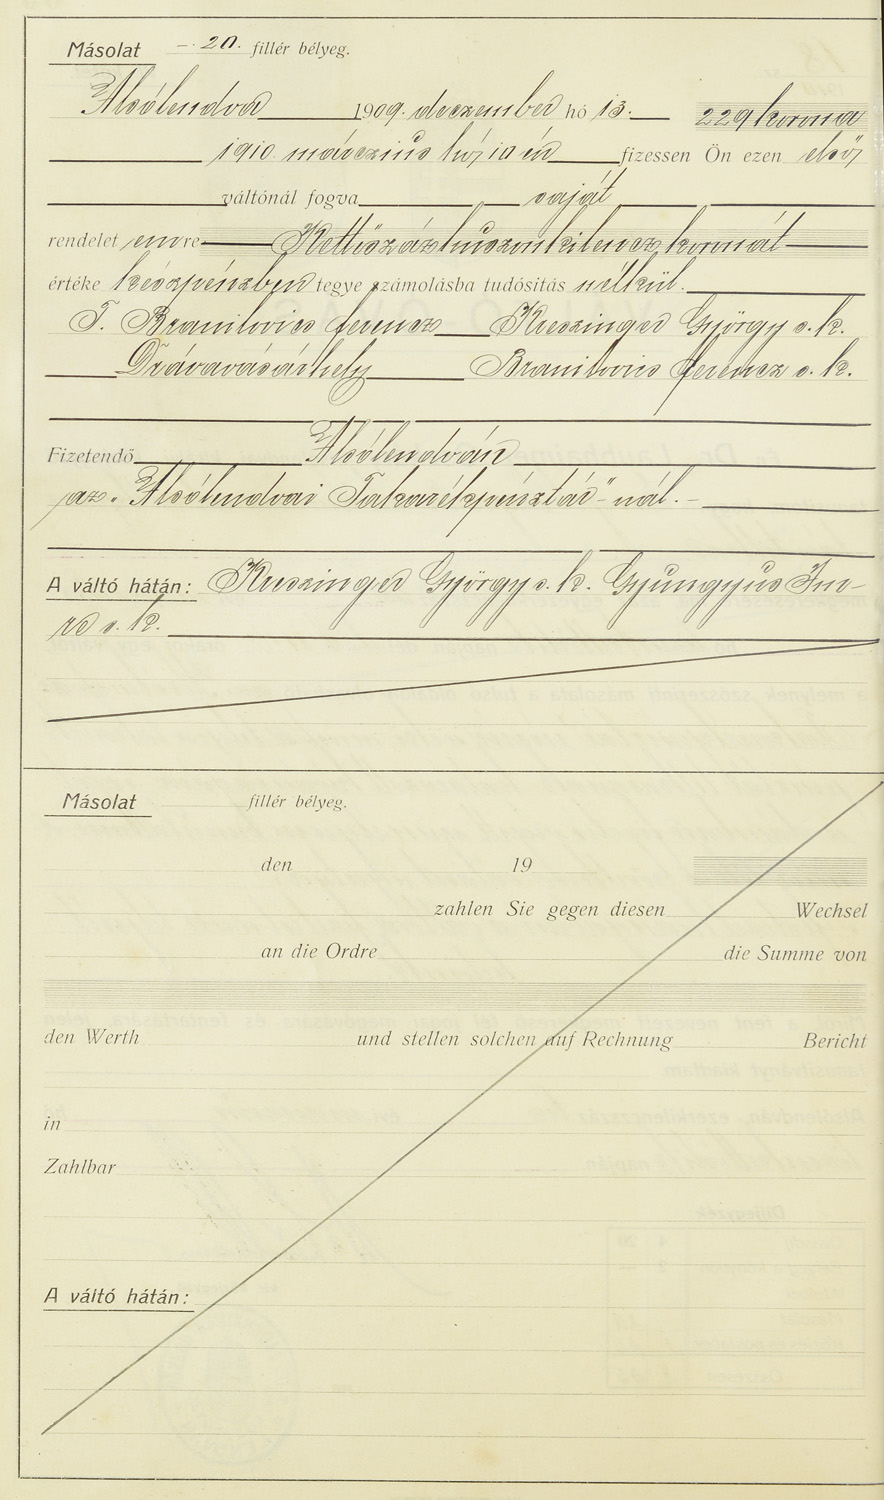 Másolat -.20. fillér bélyeg.
Alsólendva 1909. deczember hó 13. 229 korona
1910. márczius hó 10 én fizessen Ön ezen első
váltónál fogva saját
rendelet emre Kettőszázhuszonkilencz koronát
értéke készpénzben tegye számolásba tudósitás nélkül.
T. Branilovics Ferencz Kreszinger György s. k.
Drávavásárhely Branilovics Ferencz s. k.
Fizetendő Alsólendván
az „Alsólendvai Takarékpénztár"-nál.
A váltó hátán: Kreszinger György s. k. Gyungyus Im-
re s. k.
Másolat fillér bélyeg.
den 19
zahlen Sie gegen diesen Wechsel
an die Ordre die Summe von
den Werth und stellen solchen auf Rechnung Bericht
in
Zahlbar
A váltó hátán: